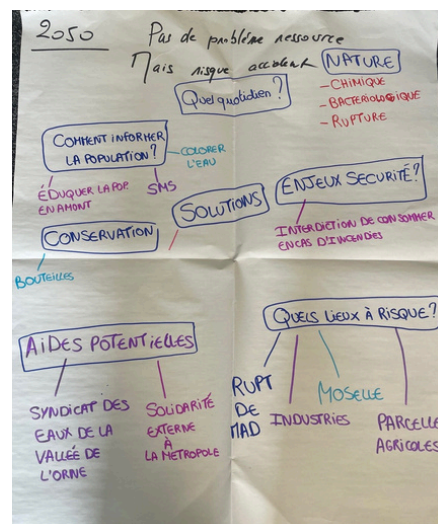 2050
Pas de problème ressource
Mais risque accident
NATURE
- CHIMIQUE
- BACTERIOLOGIQUE
- RUPTURE
Quel quotidien ?
COMMENT INFORMER
LA POPULATION ?
COLORER
L'EAU
ÉDUQUER LA POP.
EN AMONT
SMS
ENJEUX SECURITÉ ?
INTERDICTION DE CONSOMMER
EN CAS D'INCENDIES
SOLUTIONS
CONSERVATION
BOUTEILLES
QUELS LIEUX À RISQUE ?
RUPT
DE
MAD
INDUSTRIES
MOSELLE
PARCELLE
AGRICOLES
AIDES POTENTIELLES
SYNDICAT DES
EAUX DE LA
VALLÉE DE
L'ORNE
SOLIDARITÉ
EXTERNE
À
LA METROPOLE